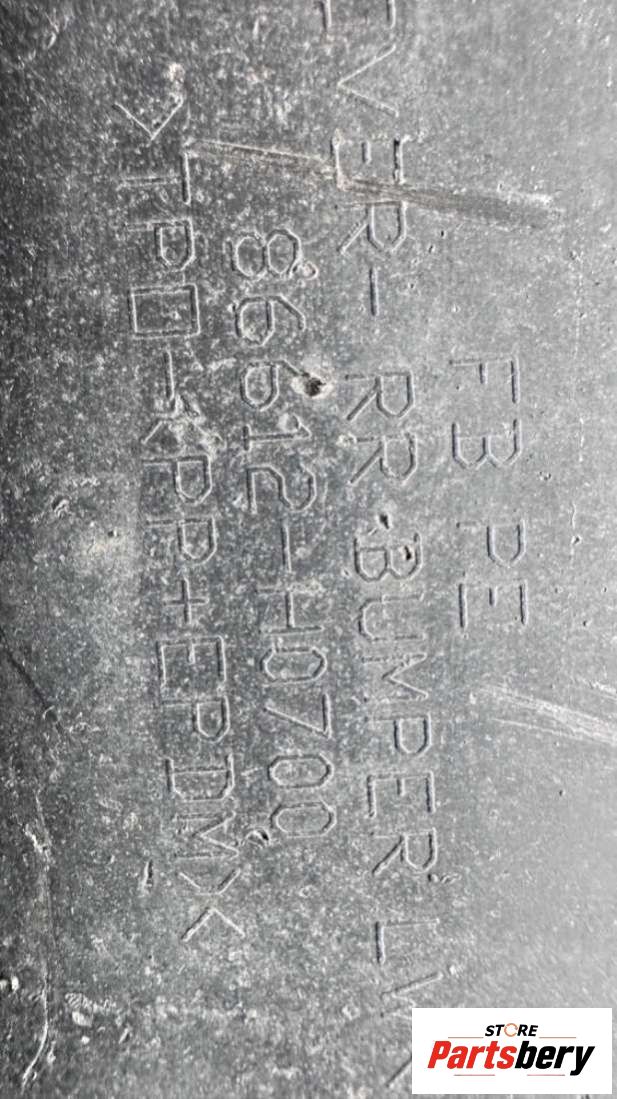 FB PE
EVER- RR BUMPER LW
86612-H0700
>TPO-<PP+EPDM><
STORE
Partsbery